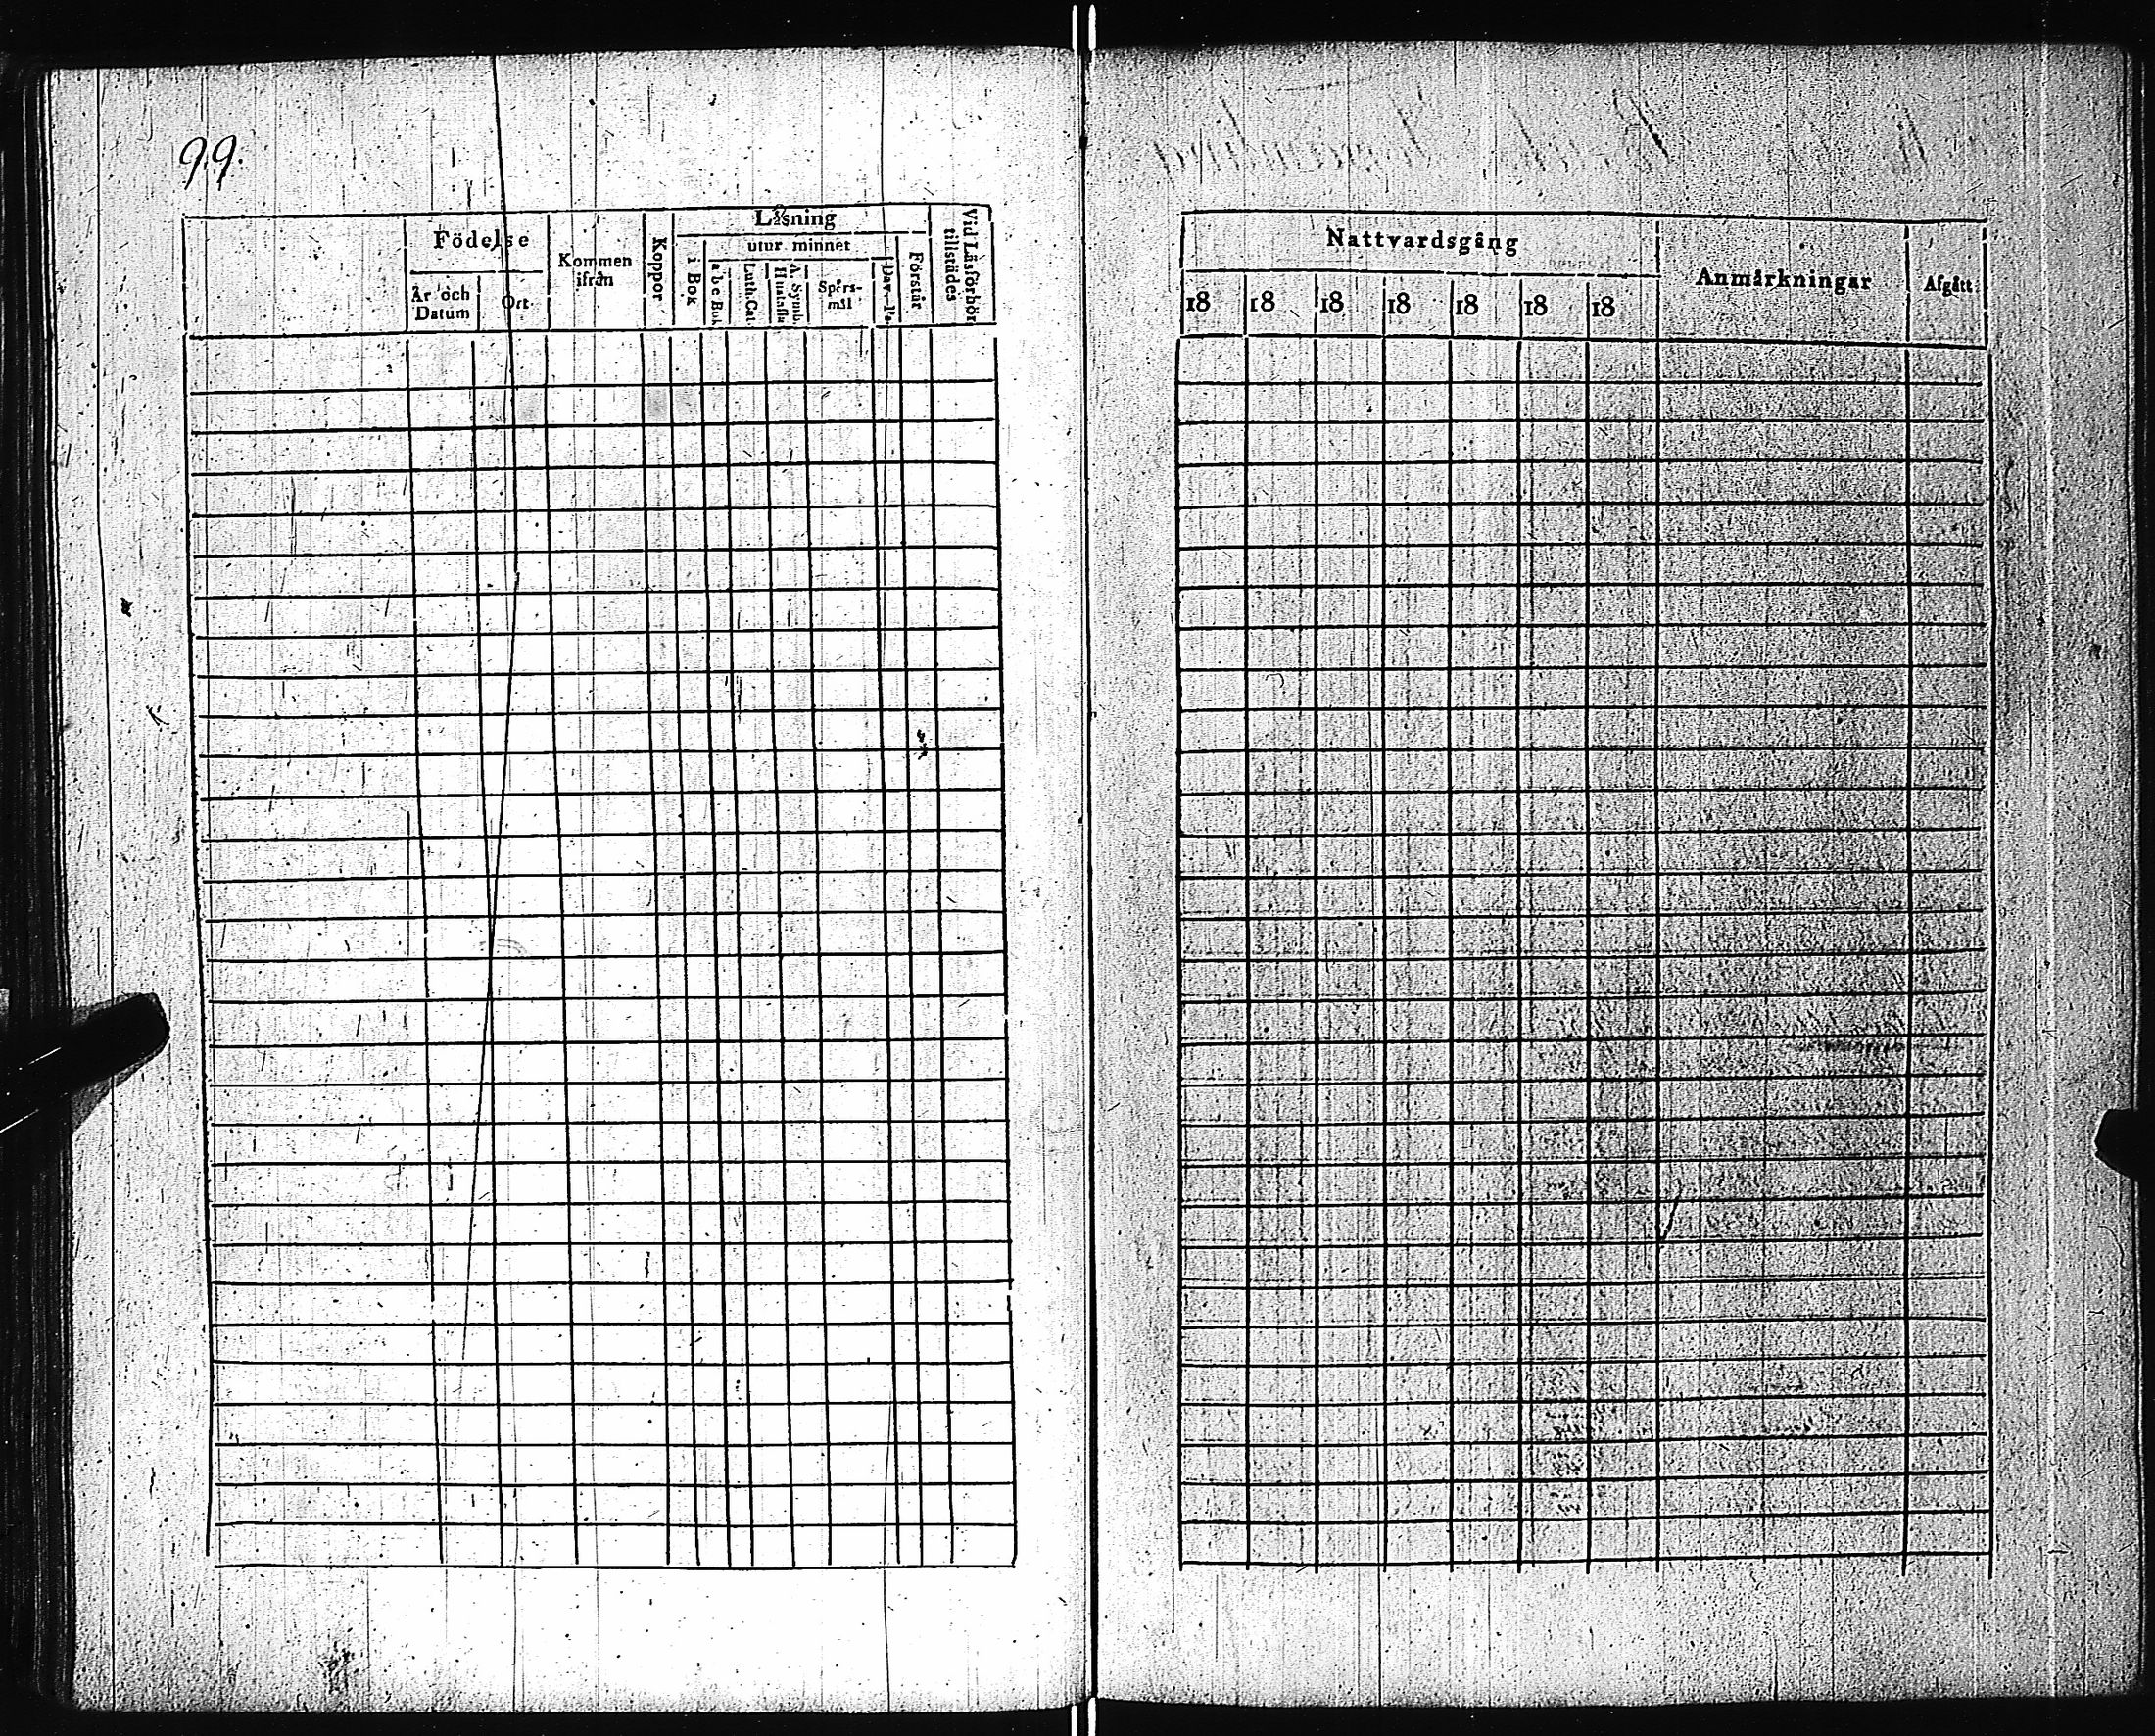 99.
Födelse
År och Datum
Ort
Kommen ifrån
Koppor
Läsning
i Bok
utur minnet
a b c Bok
Luth. Cat.
A. Symb. Hustafla
Spörs-mål
Dav. Ps.
Förstår
Vid Läsförhör tillstädes
Nattvardsgång
18 18 18 18 18 18 18
Anmärkningar
Afgått